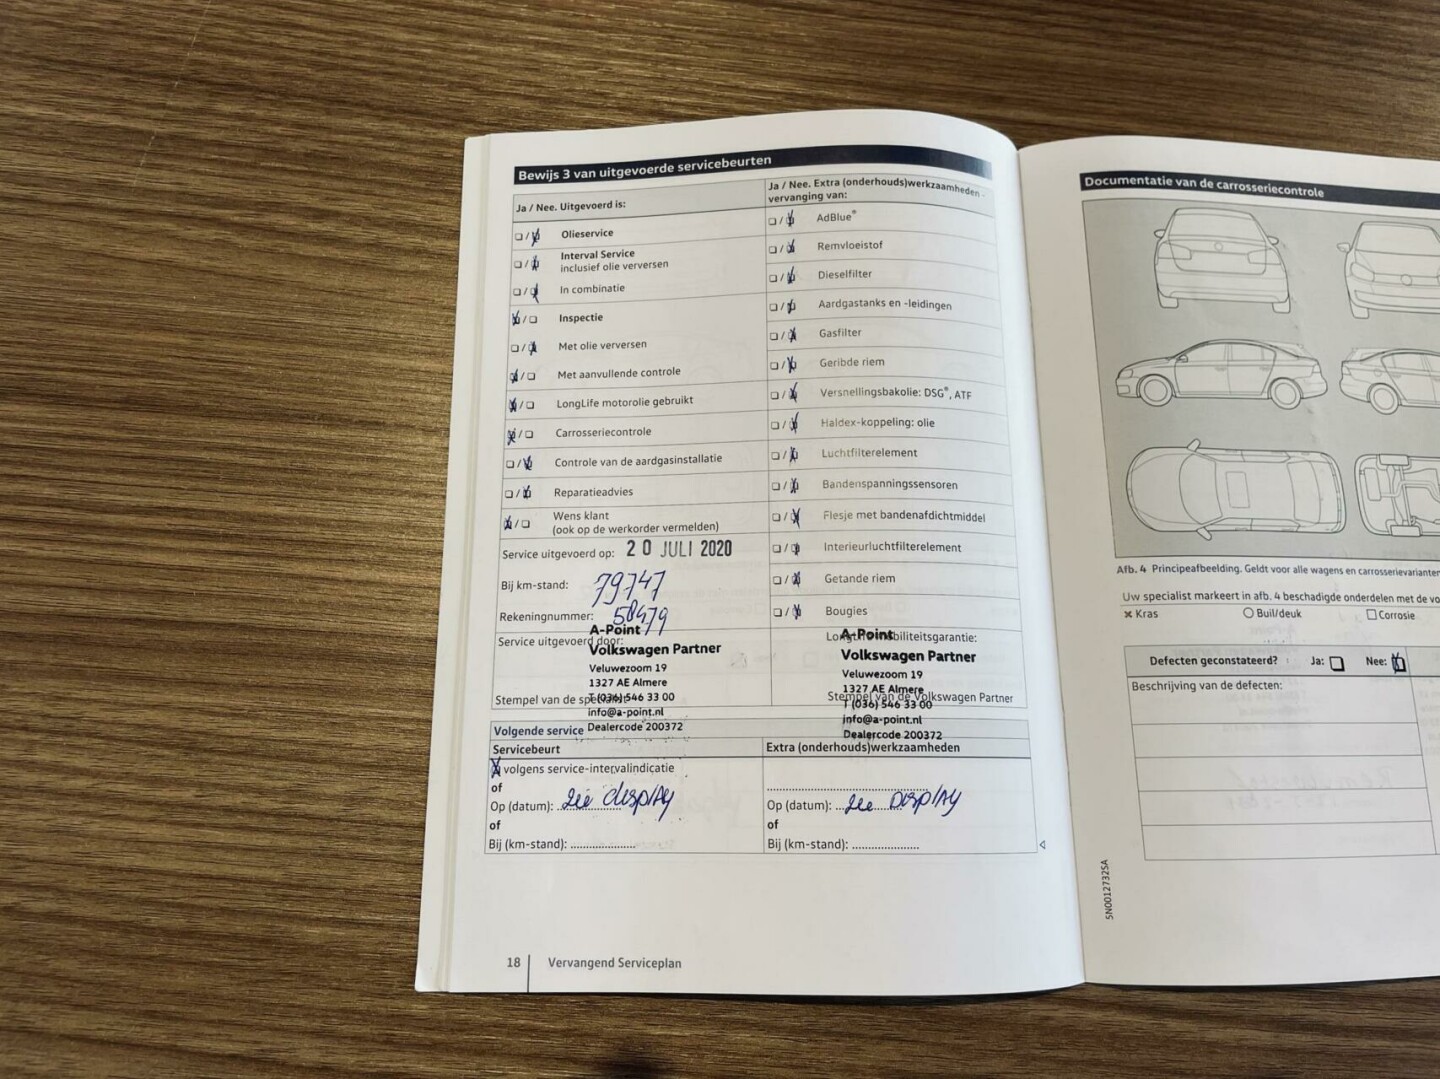 Bewijs 3 van uitgevoerde servicebeurten
Ja / Nee. Uitgevoerd is:
Olieservice
Interval Service
inclusief olie verversen
In combinatie
Inspectie
Met olie verversen
Met aanvullende controle
LongLife motorolie gebruikt
Carrosseriecontrole
Controle van de aardgasinstallatie
Reparatieadvies
Wens klant
(ook op de werkorder vermelden)
Service uitgevoerd op: 20 JULI 2020
Bij km-stand: 79747
Rekeningnummer: 58479
Service uitgevoerd door:
A-Point
Volkswagen Partner
Veluwezoom 19
1327 AE Almere
T (036) 546 33 00
info@a-point.nl
Dealercode 200372
Stempel van de specialist
Ja / Nee. Extra (onderhouds)werkzaamheden -
vervanging van:
AdBlue®
Remvloeistof
Dieselfilter
Aardgastanks en -leidingen
Gasfilter
Geribde riem
Versnellingsbakolie: DSG®, ATF
Haldex-koppeling: olie
Luchtfilterelement
Bandenspanningssensoren
Flesje met bandenafdichtmiddel
Interieurluchtfilterelement
Getande riem
Bougies
A-Point
Volkswagen Partner
Veluwezoom 19
1327 AE Almere
T (036) 546 33 00
info@a-point.nl
Dealercode 200372
Stempel van de Volkswagen Partner
Volgende service
Servicebeurt
volgens service-intervalindicatie
of
Op (datum): zie display
of
Bij (km-stand):
Extra (onderhouds)werkzaamheden
Op (datum): zie display
of
Bij (km-stand):
18 Vervangend Serviceplan
Documentatie van de carrosseriecontrole
Afb. 4 Principeafbeelding. Geldt voor alle wagens en carrosserievarianten
Uw specialist markeert in afb. 4 beschadigde onderdelen met de
Kras Buil/deuk Corrosie
Defecten geconstateerd? Ja: Nee:
Beschrijving van de defecten:
5N0012732SA